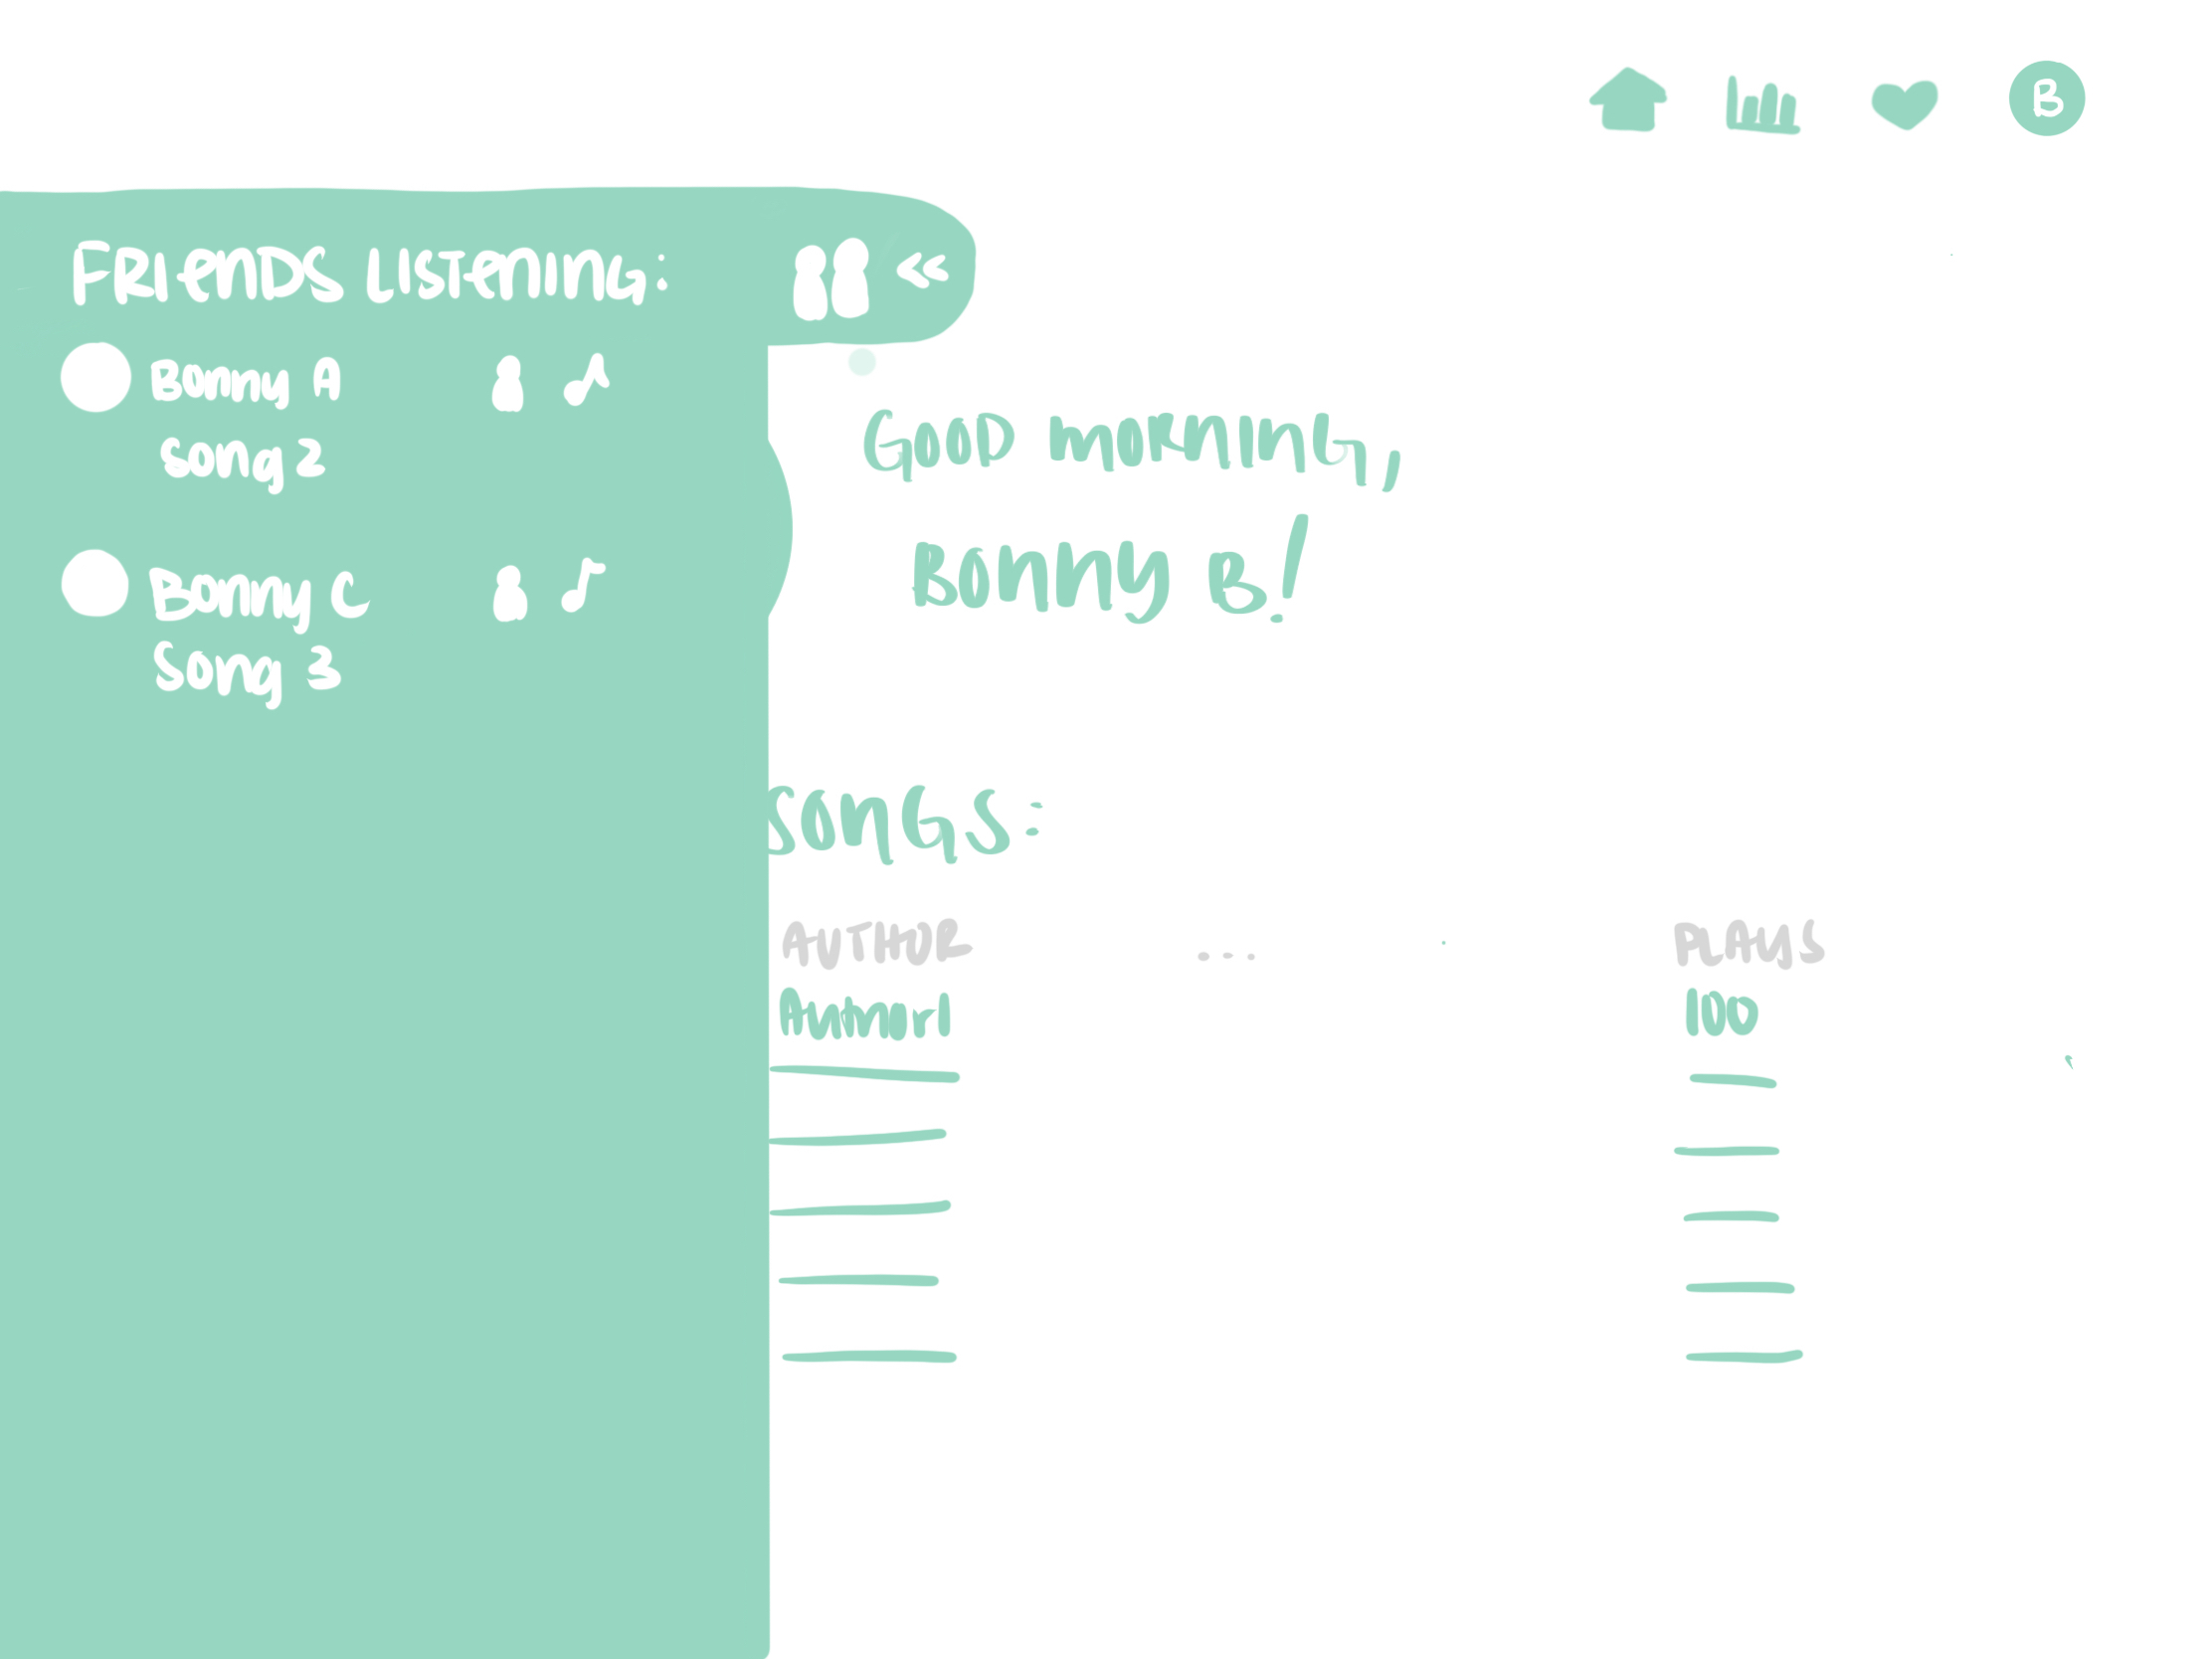 B
FRIENDS LISTENING:
Bonny A
Song 2
Bonny C
Song 3
GOOD MORNING,
Bonny B!
SONGS:
AUTHOR ... PLAYS
Author 1 100